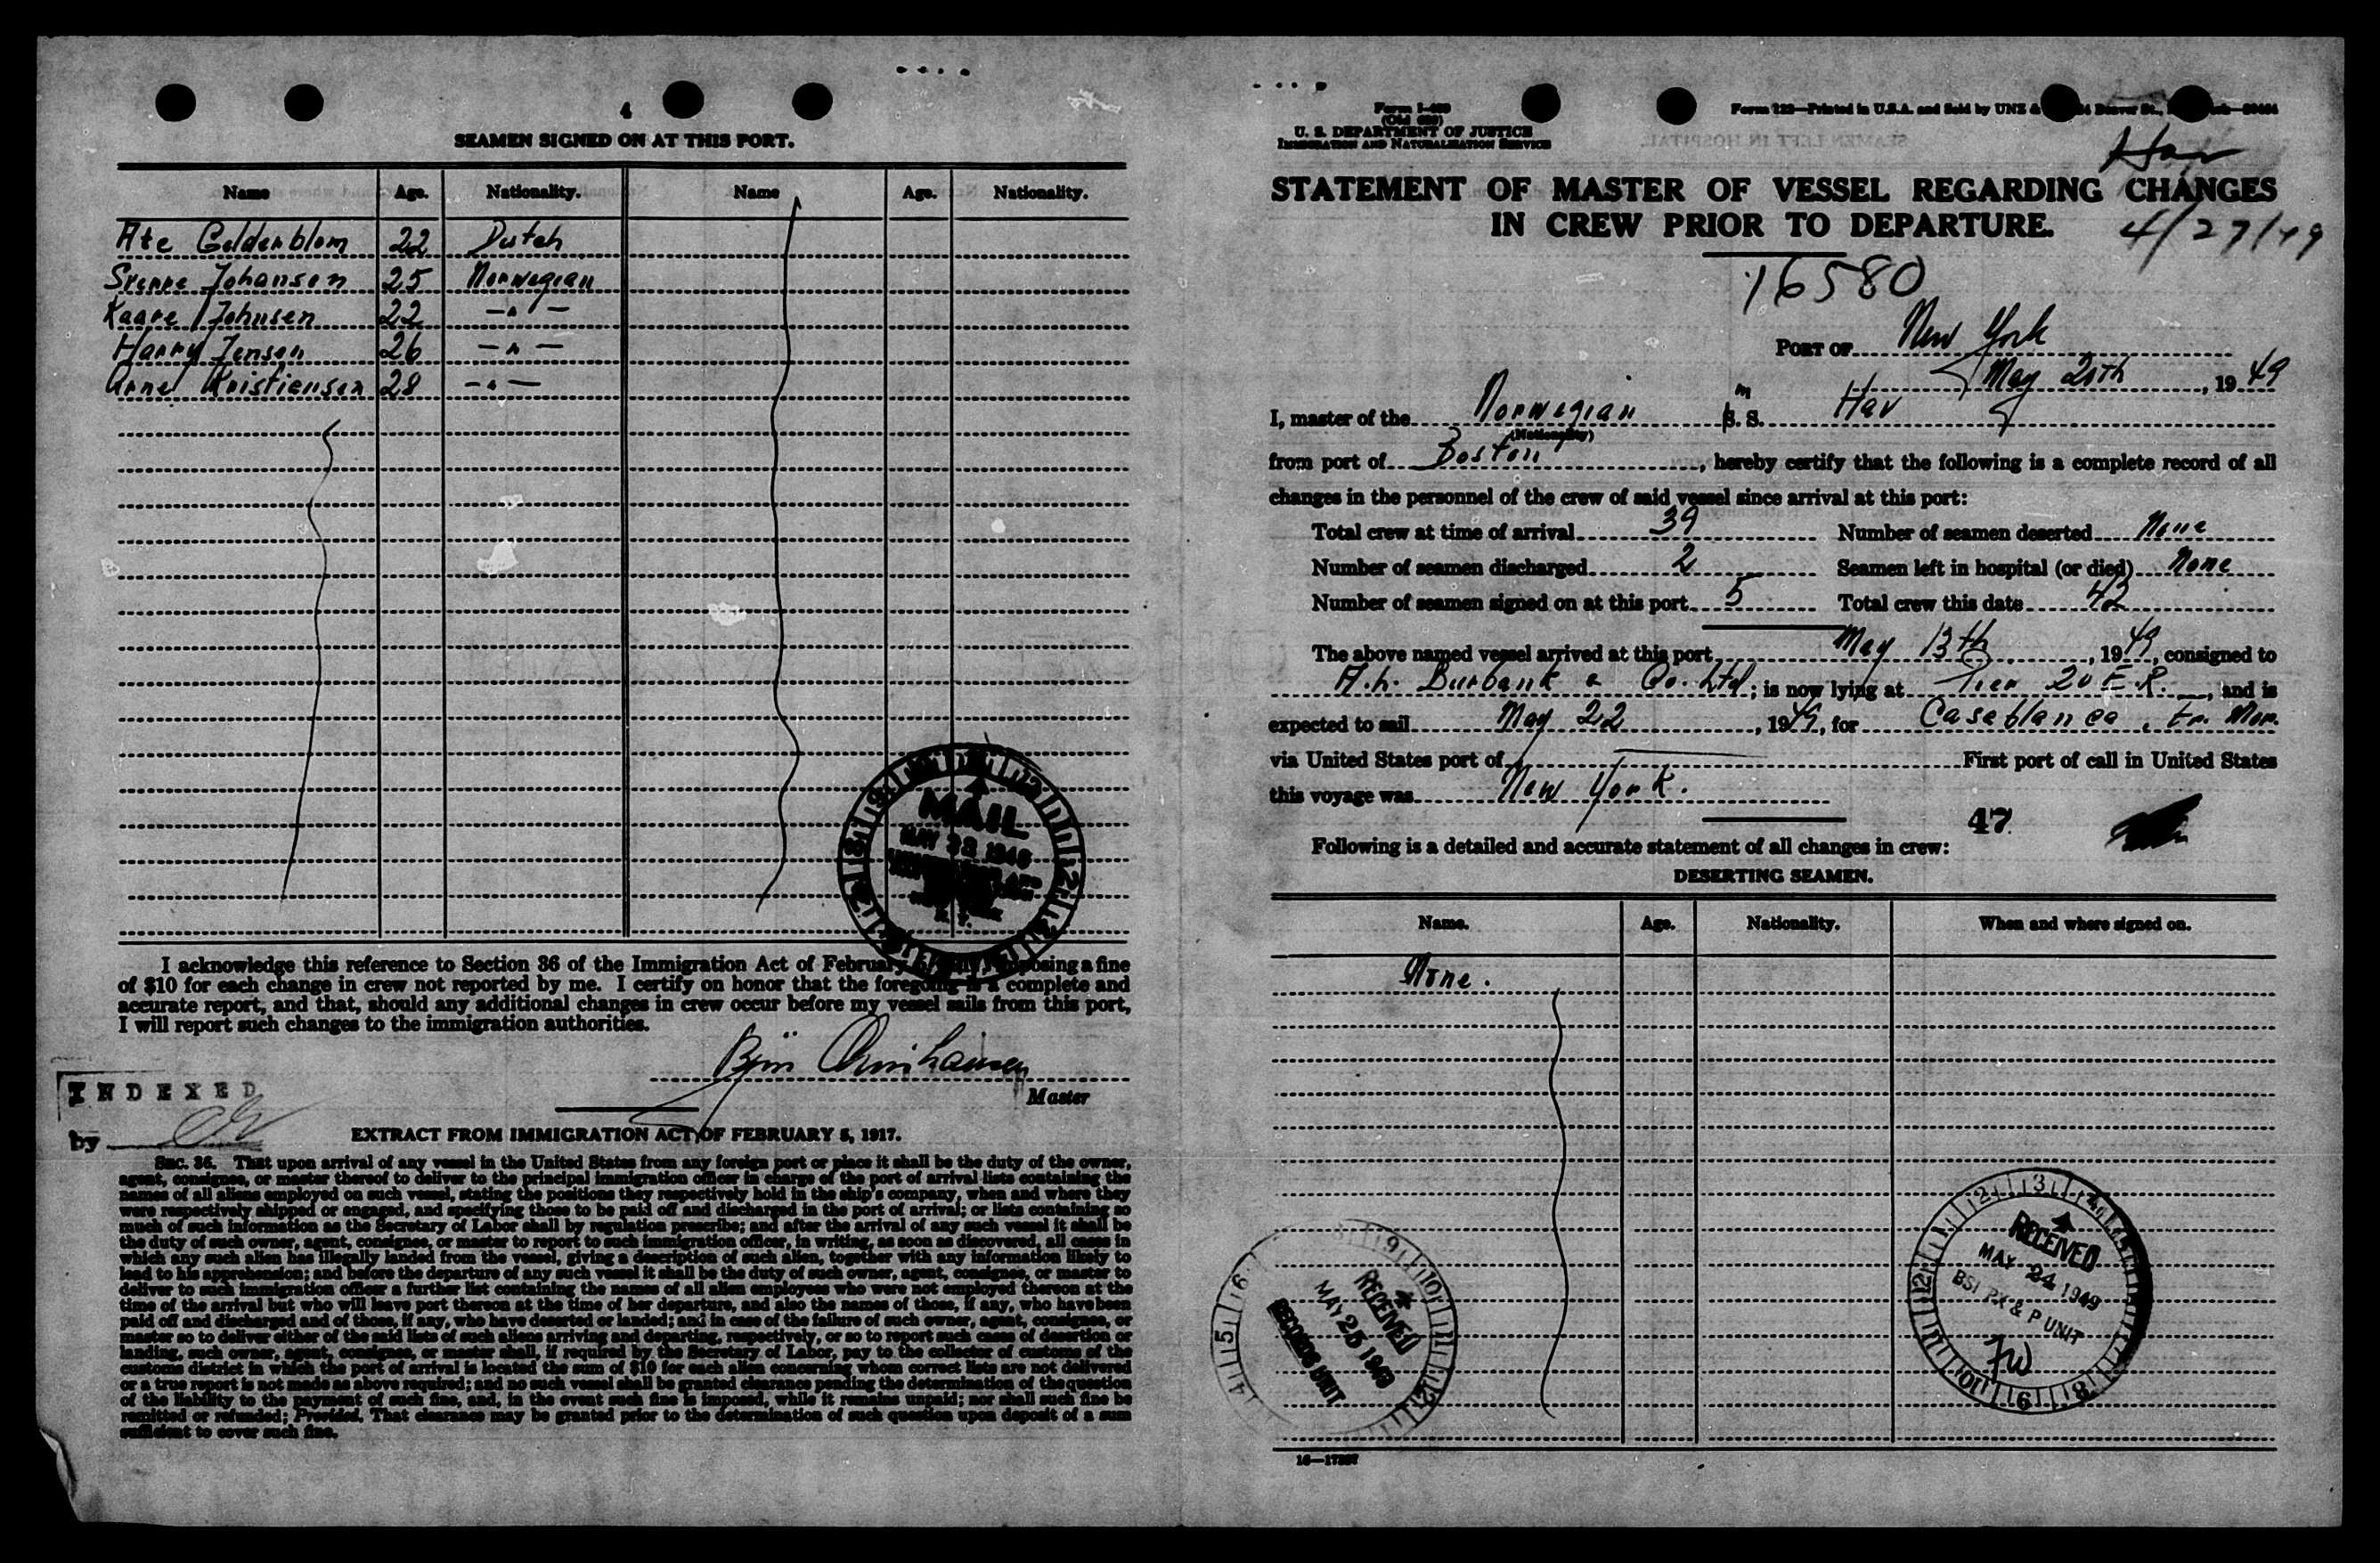 4
SEAMEN SIGNED ON AT THIS PORT.
Name Age. Nationality. Name Age. Nationality.
Ate Gelderblom 22 Dutch
Sverre Johansen 25 Norwegian
Kaare Johnsen 22 —"—
Harry Jensen 26 —"—
Arne Kristiensen 28 —"—
MAIL
MAY 1949
I acknowledge this reference to Section 36 of the Immigration Act of February imposing a fine
of $10 for each change in crew not reported by me. I certify on honor that the foregoing is a complete and
accurate report, and that, should any additional changes in crew occur before my vessel sails from this port,
I will report such changes to the immigration authorities.
Master
INDEXED
by
EXTRACT FROM IMMIGRATION ACT OF FEBRUARY 5, 1917.
SEC. 36. That upon arrival of any vessel in the United States from any foreign port or place it shall be the duty of the owner,
agent, consignee, or master thereof to deliver to the principal immigration officer in charge of the port of arrival lists containing the
names of all aliens employed on such vessel, stating the positions they respectively hold in the ship's company, when and where they
were respectively shipped or engaged, and specifying those to be paid off and discharged in the port of arrival; or lists containing so
much of such information as the Secretary of Labor shall by regulation prescribe; and after the arrival of any such vessel it shall be
the duty of such owner, agent, consignee, or master to report to such immigration officer, in writing, as soon as discovered, all cases in
which any such alien has illegally landed from the vessel, giving a description of such alien, together with any information likely to
lead to his apprehension; and before the departure of any such vessel it shall be the duty of such owner, agent, consignee, or master to
deliver to such immigration officer a further list containing the names of all alien employees who were not employed thereon at the
time of the arrival but who will leave port thereon at the time of her departure, and also the names of those, if any, who have been
paid off and discharged and of those, if any, who have deserted or landed; and in case of the failure of such owner, agent, consignee, or
master so to deliver either of the said lists of such aliens arriving and departing, respectively, or so to report such cases of desertion or
landing, such owner, agent, consignee, or master shall, if required by the Secretary of Labor, pay to the collector of customs of the
customs district in which the port of arrival is located the sum of $10 for each alien concerning whom correct lists are not delivered
or a true report is not made as above required; and no such vessel shall be granted clearance pending the determination of the question
of the liability to the payment of such fine, and, in the event such fine is imposed, while it remains unpaid; nor shall such fine be
remitted or refunded; Provided, That clearance may be granted prior to the determination of such question upon deposit of a sum
sufficient to cover such fine.
U. S. DEPARTMENT OF JUSTICE
IMMIGRATION AND NATURALIZATION SERVICE
Form 122—Printed in U.S.A. and Sold by UNZ &
Hav
4/27/49
STATEMENT OF MASTER OF VESSEL REGARDING CHANGES
IN CREW PRIOR TO DEPARTURE.
16580
PORT OF New York
May 20th, 1949
I, master of the Norwegian m S. S. Hav
(Nationality)
from port of Boston, hereby certify that the following is a complete record of all
changes in the personnel of the crew of said vessel since arrival at this port:
Total crew at time of arrival 39 Number of seamen deserted None
Number of seamen discharged 2 Seamen left in hospital (or died) None
Number of seamen signed on at this port 5 Total crew this date 42
The above named vessel arrived at this port May 13th, 1949, consigned to
A.L. Burbank & Co. Ltd; is now lying at Pier 20 E.R., and is
expected to sail May 22, 1949, for Casablanca, Fr. Mor.
via United States port of — First port of call in United States
this voyage was New York.
47
Following is a detailed and accurate statement of all changes in crew:
DESERTING SEAMEN.
Name. Age. Nationality. When and where signed on.
None.
RECEIVED
MAY 25 1949
RECORDS UNIT
RECEIVED
MAY 24 1949
BSI PX & P UNIT